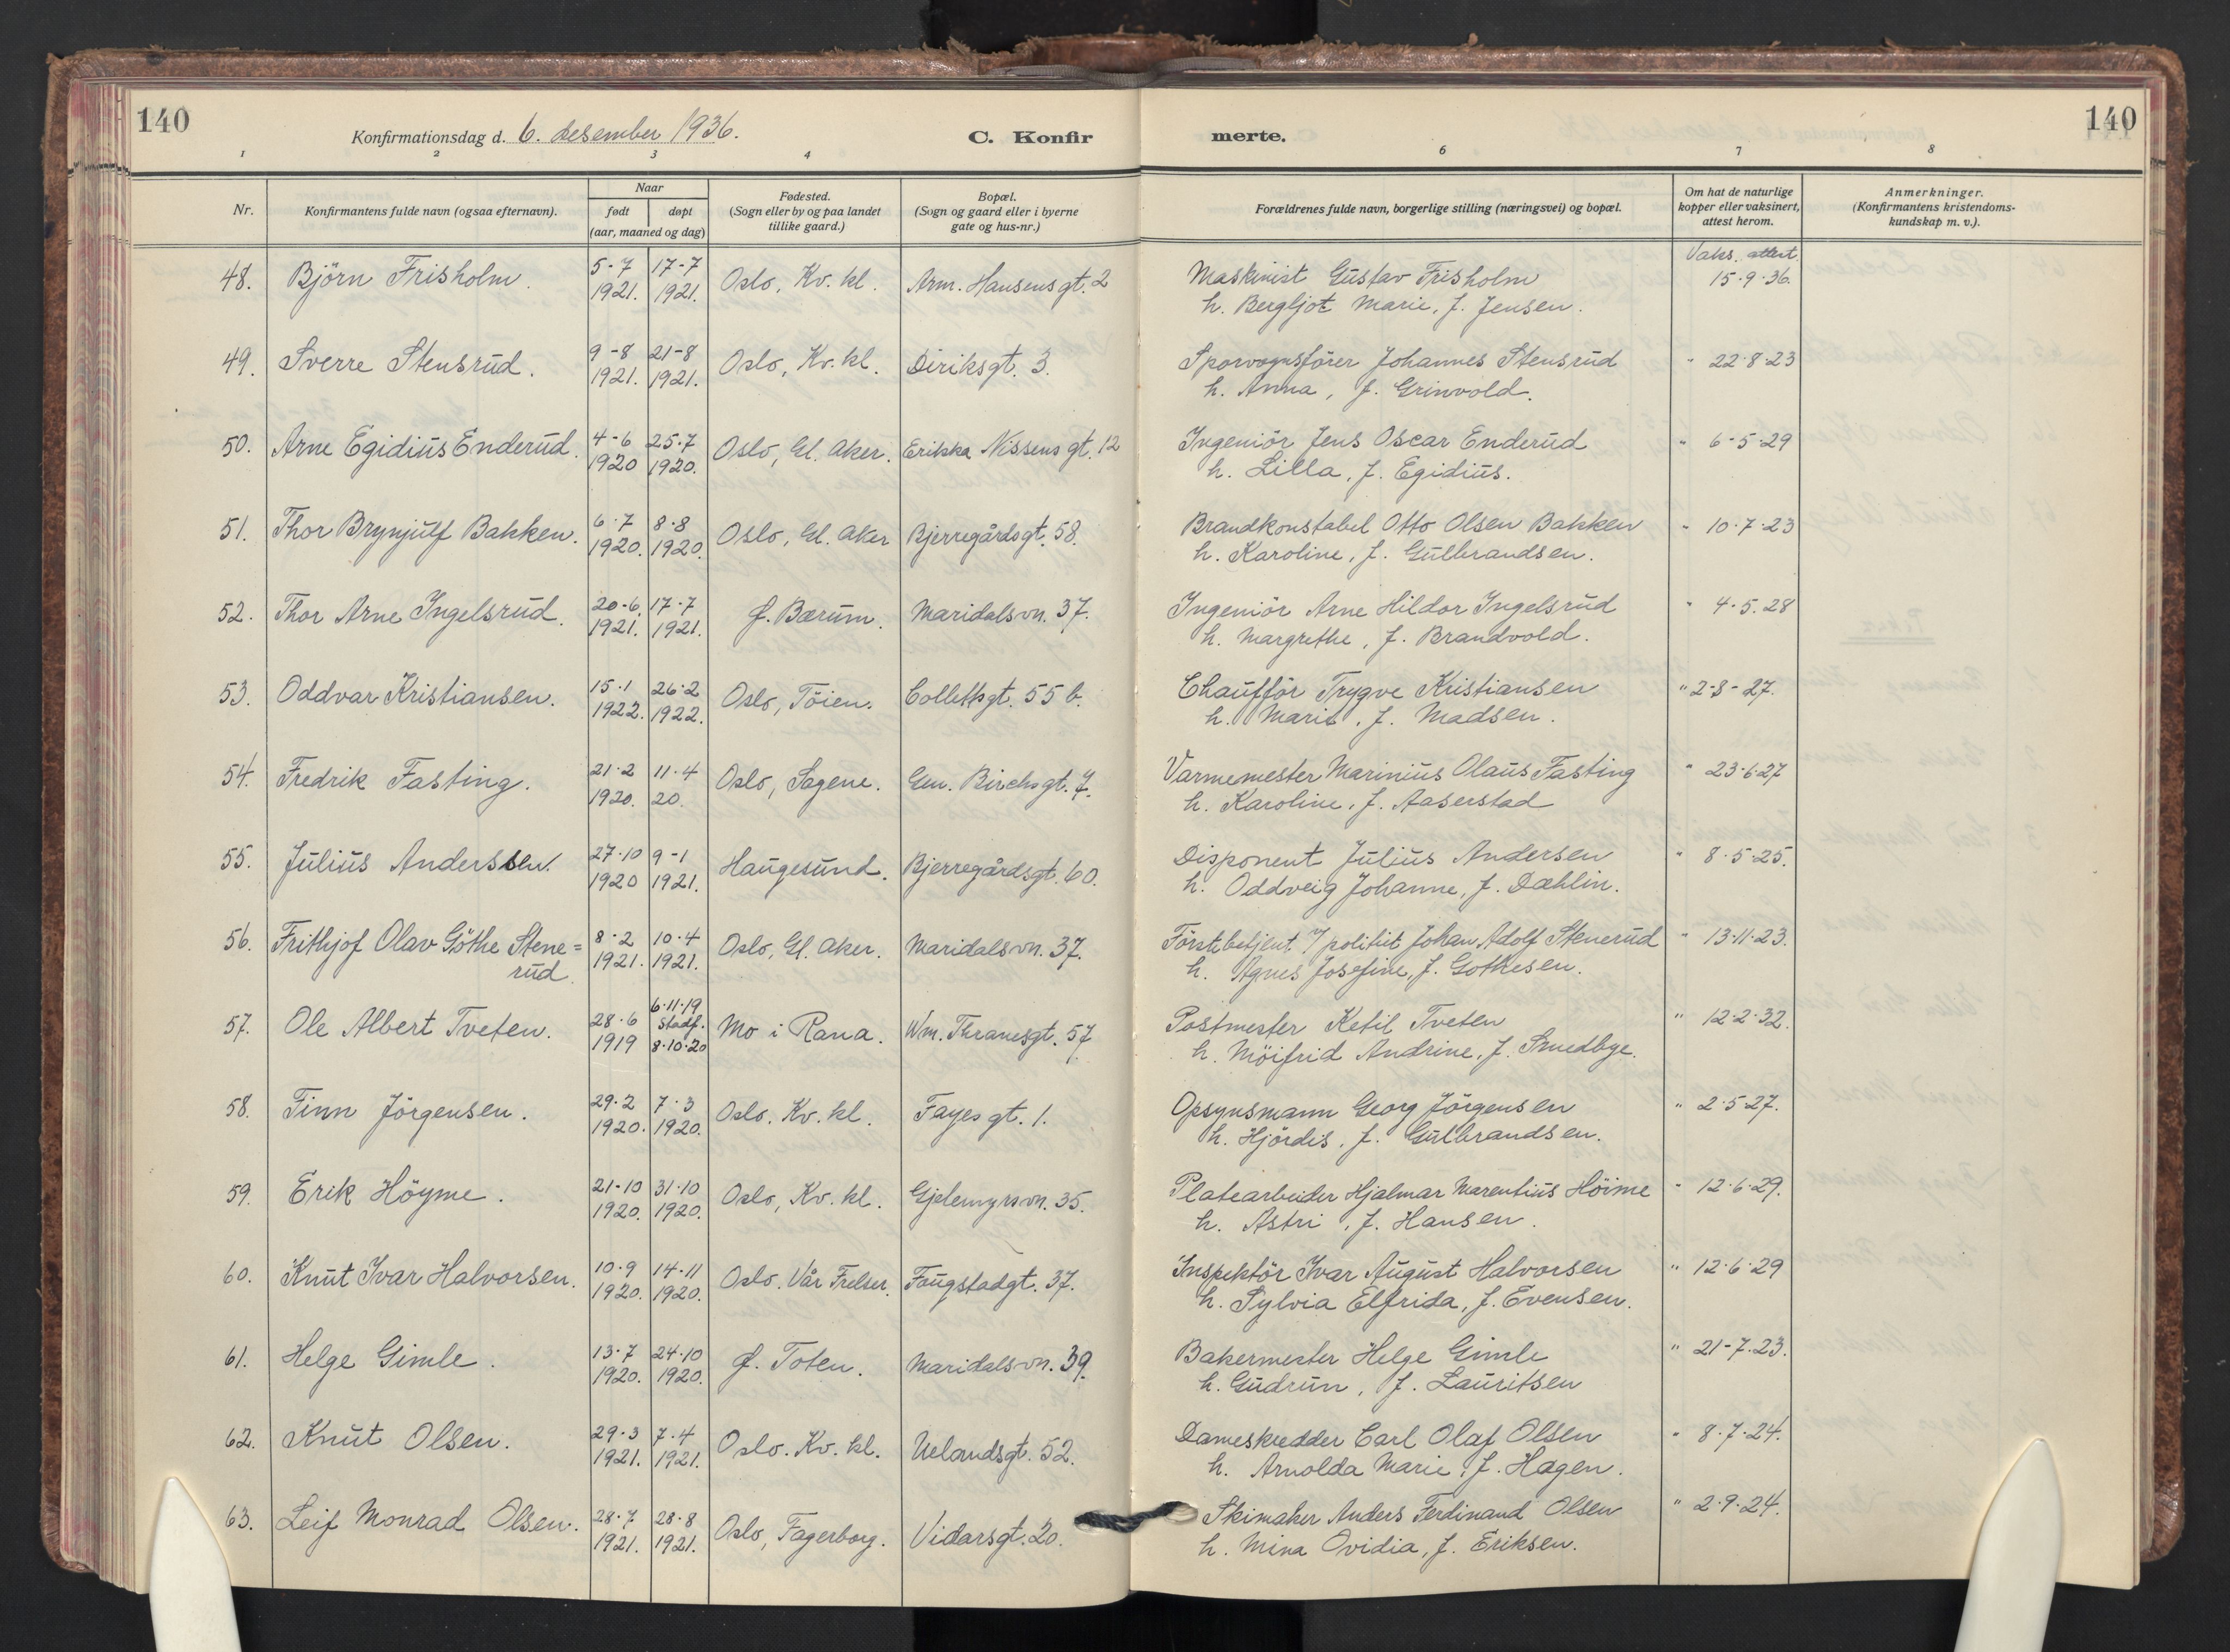 140
Konfirmationsdag d. 6. desember 1936.
C. Konfir
merte.
140
1 2 3 4 6 7 8
Nr.
Konfirmantens fulde navn (ogsaa efternavn).
Naar
født døpt
(aar, maaned og dag)
Fødested.
(Sogn eller by og paa landet
tillike gaard.)
Bopæl.
(Sogn og gaard eller i byerne
gate og hus-nr.)
Forældrenes fulde navn, borgerlige stilling (næringsvei) og bopæl.
Om hat de naturlige
kopper eller vaksinert,
attest herom.
Anmerkninger.
(Konfirmantens kristendoms-
kundskap m. v.).
48. Björn Frisholm. 5-7 1921. 17-7 1921. Oslo, Kv. kl. Arm. Hansens gt. 2 Maskinist Gustav Frisholm Vaks. attest. 15·9·36.
h. Bergljot Marie, f. Jensen.
49. Sverre Stensrud. 9-8 1921. 21-8 1921. Oslo, Kv. kl. Diriksgt. 3. Sporvognsfører Johannes Stensrud " 22·8·23
h. Anna, f. Grinvold.
50. Arne Egidius Enderud. 4-6 1920 25·7 1920. Oslo, Gl. Aker. Erikka Nissens gt. 12 Ingeniör Jens Oscar Enderud " 6-5·29
h. Lilla, f. Egidius.
51. Thor Brynjulf Bakken. 6·7 1920. 8·8 1920. Oslo, Gl. Aker Bjerregårdsgt. 58. Brandkonstabel Otto Olsen Bakken " 10·7·23
h. Karoline, f. Gulbrandsen.
52. Thor Arne Ingelsrud. 20-6. 1921. 17·7 1921. f. Bærum. Maridalsvn. 37. Ingeniör Arne Hildor Ingelsrud " 4·5.28
h. Margrethe, f. Brandvold.
53. Oddvar Kristiansen. 15·1 1922. 26·2 1922. Oslo, Töien. Collettsgt. 55 b. Chaufför Trygve Kristiansen " 2-8-27.
h. Marie, f. Madsen.
54. Fredrik Fasting. 21·2 1920. 11·4 20. Oslo, Sagene. Gen. Birchsgt. 7. Varmemester Marinius Olaus Fasting " 23·6·27
h. Karoline, f. Aaserstad
55. Julius Anderssen. 27·10 1920 9-1 1921. Haugesund. Bjerregårdsgt. 60. Disponent Julius Andersen " 8·5·25.
h. Oddveig Johanne, f. Dæhlin.
56. Frithjof Olav Göthe Stene= 8·2 1921. 10·4 1921. Oslo, Gl. Aker. Maridalsvn. 37. Förstebetjent i politiet Johan Adolf Stenerud " 13·11·23.
rud. h. Agnes Josefine, f. Gothesen.
57. Ole Albert Tveten. 28·6 1919 6·11·19 Stadf. 8·10·20 Mo i Rana. Wm. Thranesgt. 57 Postmester Ketil Tveten " 12·2·32.
h. Möifrid Andrine, f. Smedbye.
58. Finn Jörgensen. 29·2 1920. 7·3 1920. Oslo. Kv. kl. Fayes gt. 1. Opsynsmann Georg Jörgensen " 2·5·27.
h. Hjördis, f. Gulbrandsen.
59. Erik Höyme. 21-10 1920. 31·10 1920. Oslo, Kv. kl. Gjetemyrsvn. 35. Platearbeider Hjalmar Marentius Höime " 12·6·29.
h. Astri, f. Hansen.
60. Knut Ivar Halvorsen. 10·9 1920. 14·11 1920. Oslo. Vår Frelser. Faugstadgt. 37. Inspektör Ivar August Halvorsen " 12·6·29
h. Sylvia Elfrida, f. Evensen.
61. Helge Gimle. 13·7 1920. 24·10 1920. f. Toten. Maridalsvn. 39. Bakermester Helge Gimle " 21-7.23.
h. Gudrun, f. Lauritsen
62. Knut Olsen. 29·3 1921. 7·4 1921. Oslo. Kv. kl. Uelandsgt. 52. Dameskredder Carl Olaf Olsen " 8·7·24.
h. Arnolda Marie, f. Hagen.
63. Leif Monrad Olsen. 28·7 1921. 28·8 1921. Oslo, Fagerborg. Vidarsgt. 20. Skimaker Anders Ferdinand Olsen " 2·9·24.
h. Mina Ovidia, f. Eriksen.